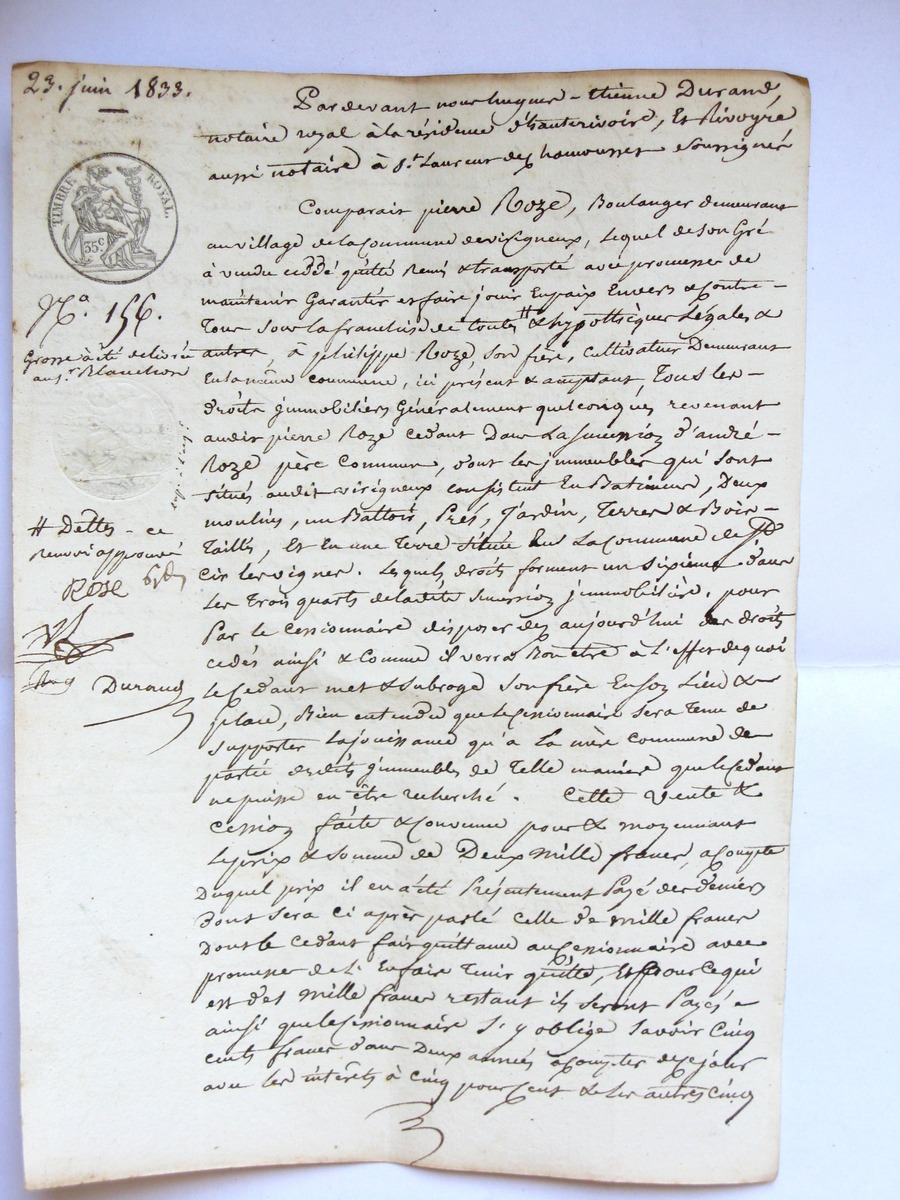 23. juin 1833.
TIMBRE ROYAL.
35c
No 156.
Grosse à été delivrée
au sr Blanchon
# Dettes - ce
renvoi approuvé
Roze
Durand
Pardevant nous hugues - étienne Durand,
notaire royal à la résidence d'hauterivoire, Et Rivoyre
aussi notaire à St Laurent de chamousset soussignés
Comparait pierre Roze, Boulanger demeurant
au village de la Commune de virigneux, Lequel de son Gré
à vendu ceddé quitté Remis & transporté avec promesse de
maintenir Garantir et faire jouir En paix Envers & Contre -
Tous sous la franchise de toutes # & hypothèques Légales &
autres, à philippe Roze, son frère, cultivateur Demeurant
En la même commune, ici présent & acceptant, Tous les -
droits jmmobiliers Généralement quelconques revenant
audit pierre Roze cedant Dans La succession d'andré -
Roze père Commun, dont les jmmeubles qui sont
situés audit virigneux consistent En Batiments, Deux
moulins, un Battoir, Prés, Jardin, Terres & Bois -
Taillis, Et En une Terre située sur La Commune de St
Cir les vignes. Lesquels droits forment un sixième dans
Les Trois quarts de la dite succession jmmobilière. pour
Par le Cessionnaire disposer dès aujourd'hui des droits
cedés ainsi & Comme il verra Bon être à L'effet de quoi
le Cedant met & subroge son frère En son Lieu &
place, Bien entendu que le Cessionnaire sera Tenu de
supporter La jouissance qu'a La mère commune de
partie desdits jmmeubles de Telle manière que le Cedant
ne puisse en être recherché. Cette Vente &
Cession faite & Convenue pour & moyennant
Le prix & somme de Deux mille francs, a Compte
Duquel prix il en a été Présentement Payé des deniers
Dont sera ci après parlé celle de mille francs
Dont le Cedant fait quittance au Cessionnaire avec
promesse de L'En faire Tenir quitte, Et Pour ce qui
est des mille francs restant ils seront Payés -
ainsi que le Cessionnaire s'y oblige savoir Cinq
cents francs dans Deux années a Compter de ce jour
avec les intérêts à cinq pour Cent & les autres Cinq